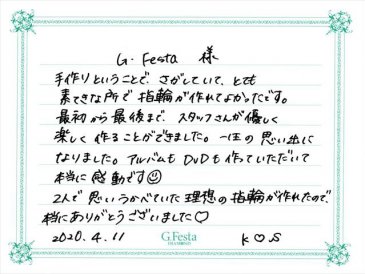 G. Festa 様
手作りということで、さがしていて、とても
素てきな所で指輪が作れてよかったです。
最初から最後まで、スタッフさんが優しく
楽しく作ることができました。一生の思い出に
なりました。アルバムもDVDも作っていただいて
本当に感動です☺
2人で思いうかべていた理想の指輪が作れたので、
本当にありがとうございました♡
2020.4.11 G.Festa K♡S
DIAMOND